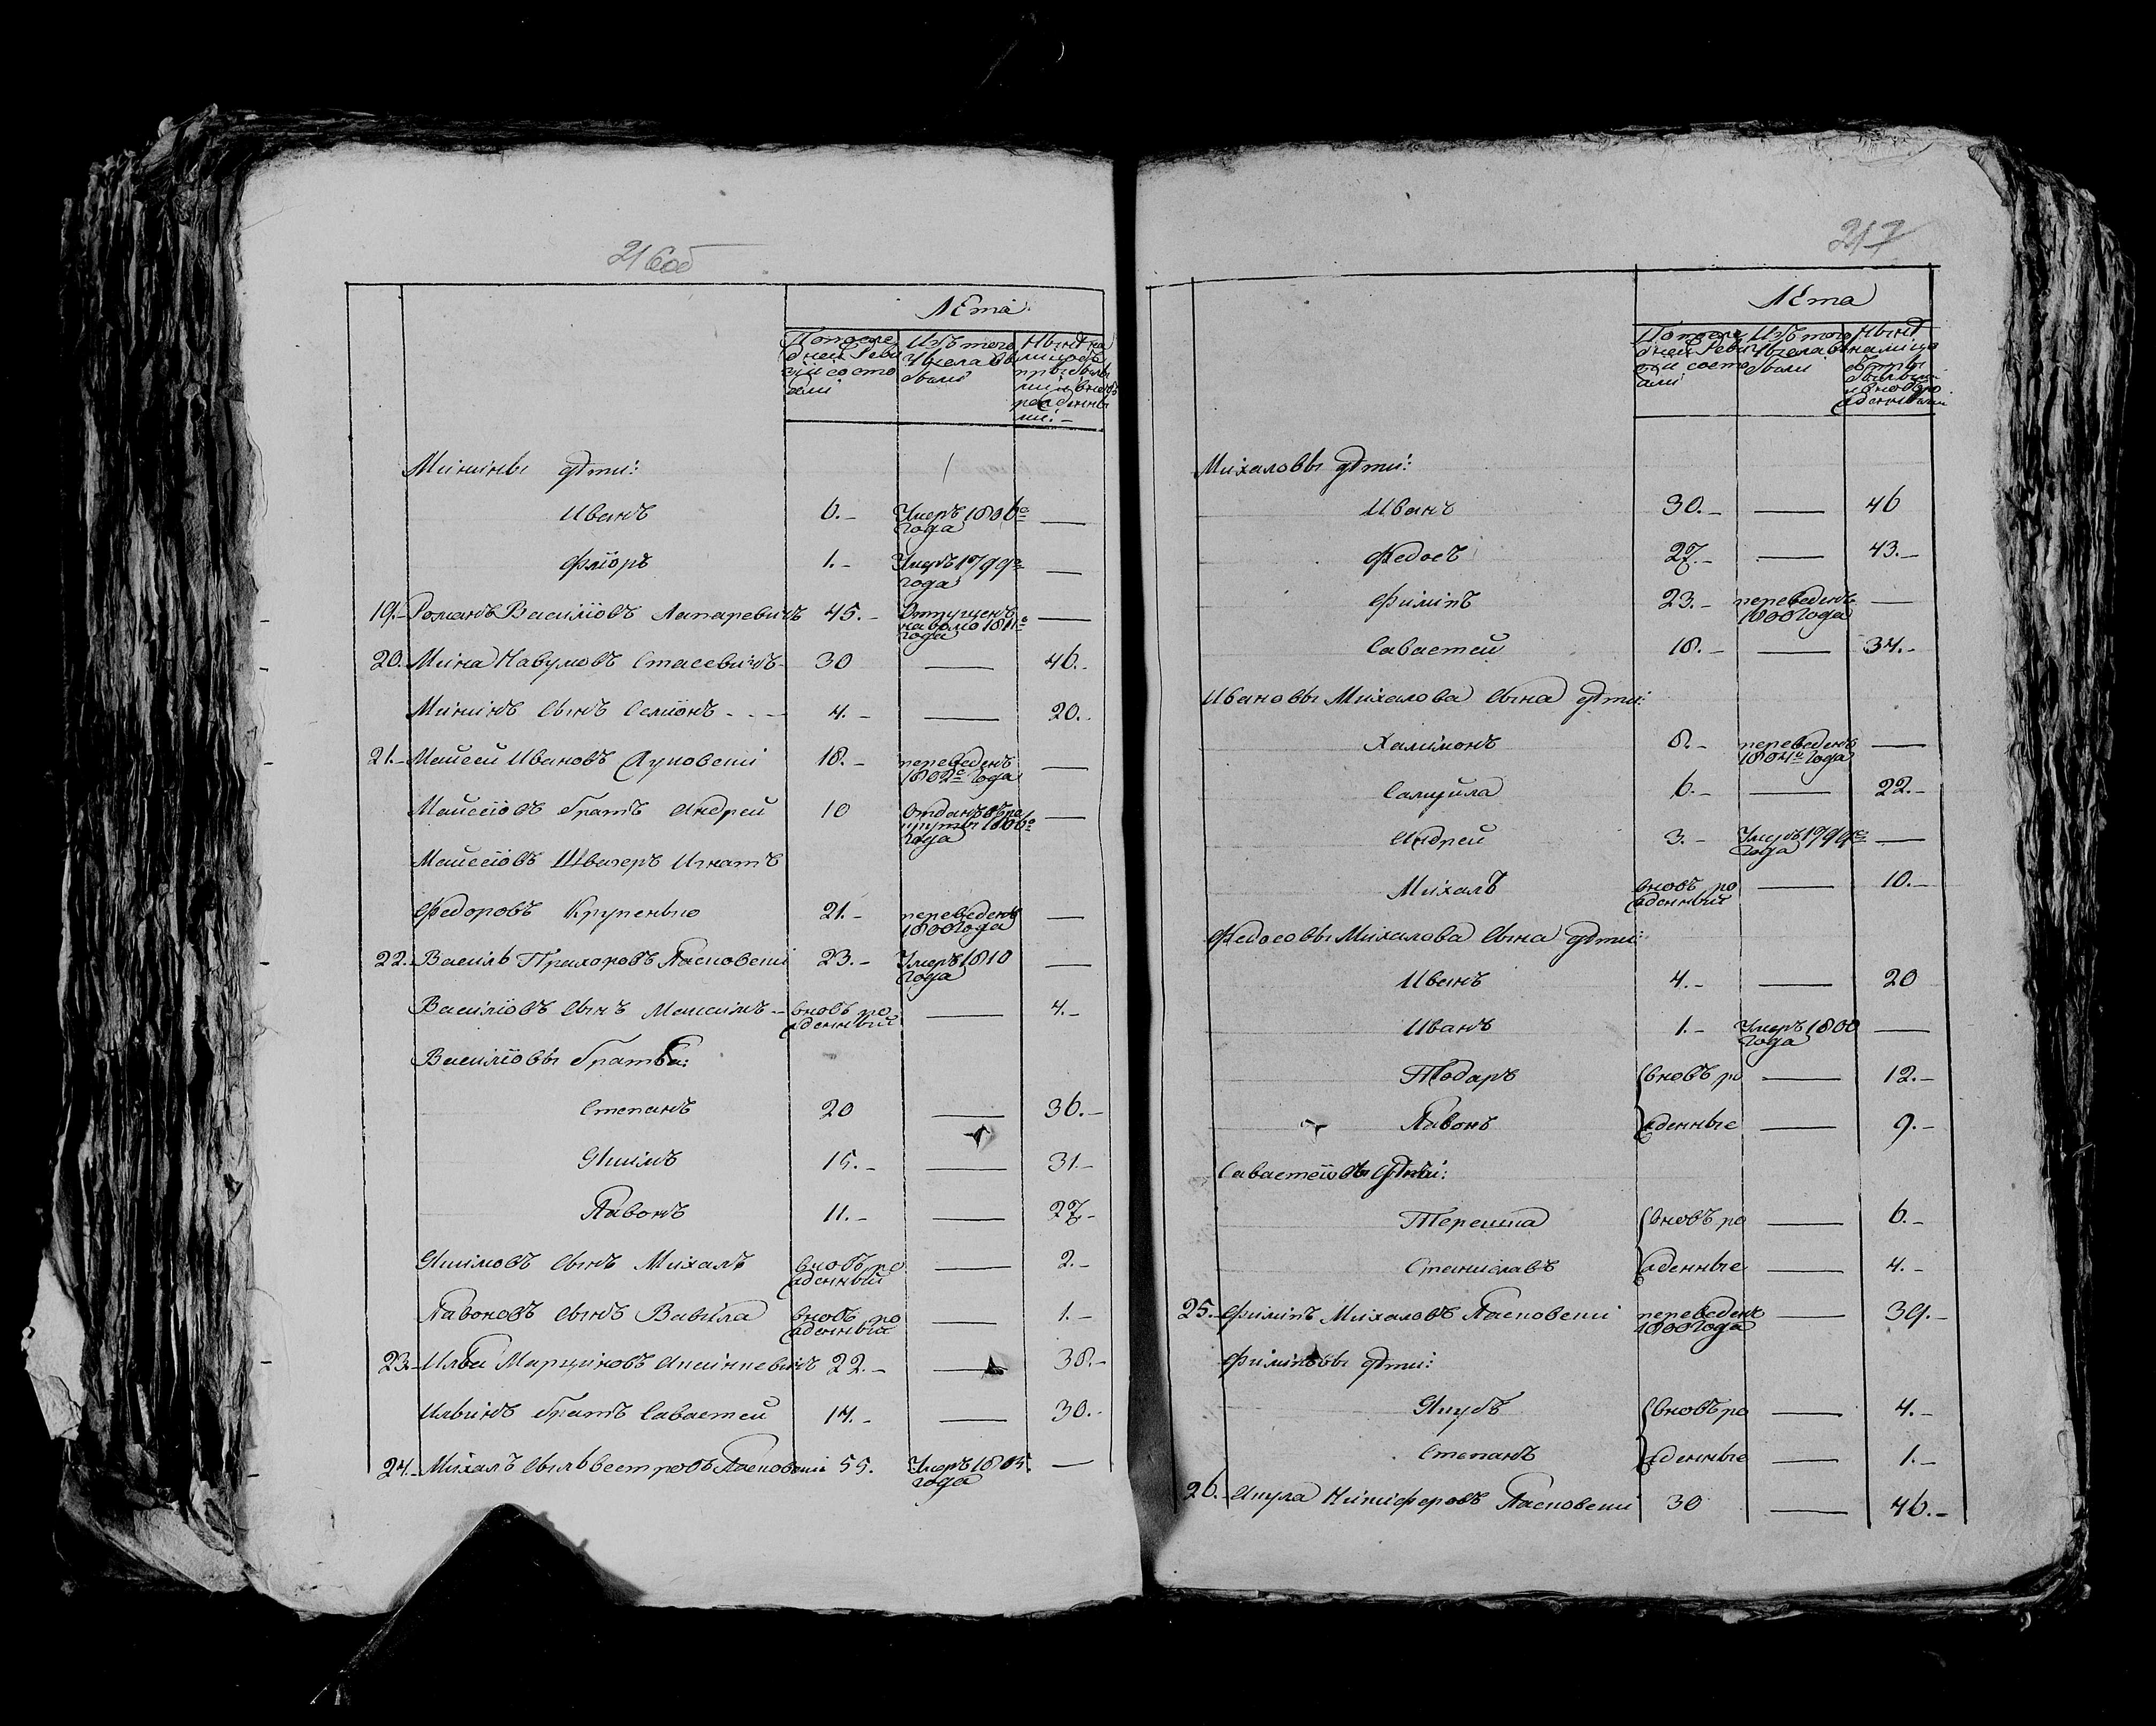 216об
Лѣта
По последней Ревизіи состояли
Изъ того числа выбыли
Нынѣ на лицо съ прибылыми и вновь рожденными
Минины дѣти:
Иванъ 6.- Умеръ 1806го года —
Флiоръ 1.- Умеръ 1799го года —
19.- Романъ Василiовъ 45.- Отпущенъ на волю 1811го года —
20. Мина Навумовъ Стасевичъ 30 — 46.-
Мининъ Сынъ Семiонъ 4.- — 20.-
21.- Мойсей Ивановъ 18.- переведенъ 1802го года —
Мойсеiовъ братъ Андрей 10 Отданъ въ рекруты 1806го года —
Мойсеiовъ Швагеръ Игнатъ
Федоровъ Крупенько 21.- переведенъ 1800 года —
22. Василь Прохоровъ Пасковскiй 23.- Умеръ 1810 года —
Василiовъ Сынъ Максимъ вновь рожденный — 4.-
Василiовы братья:
Степанъ 20 — 36.-
Якимъ 15.- — 31.-
Павокъ 11.- — 27.-
Якимовъ Сынъ Михалъ вновь рожденный — 2.-
Павоковъ Сынъ Вавила вновь рожденный — 1.-
23.- Илья Марциновъ 22.- — 38.-
Ильинъ братъ Савастей 14.- — 30.-
24.- Михалъ Сильвестровъ Пасковскiй 55. Умеръ 1805. года —
217
Лѣта
По последней Ревизіи состояли
Изъ того числа выбыли
Нынѣ на лицо съ прибылыми и вновь рожденными
Михаловы дѣти:
Иванъ 30.- — 46
Федосъ 27.- — 43.-
Филипъ 23.- переведенъ 1800 года —
Савастей 18.- — 34.-
Ивановы Михалова Сына дѣти:
Халимонъ 8.- переведенъ 1804го года —
Самуйла 6.- — 22.-
Андрей 3.- Умеръ 1799го года —
Михалъ вновь рожденный — 10.-
Федосовы Михалова Сына дѣти:
Иванъ 4.- — 20
Иванъ 1.- Умеръ 1800 года —
Тодаръ вновь ро — 12.-
Павокъ жденные — 9.-
Савастеiовы дѣти:
Терешка вновь ро — 6.-
Станиславъ жденные — 4.-
25.- Филипъ Михаловъ Пасковскiй переведенъ 1800 года — 39.-
Филиповы дѣти:
Якубъ вновь ро — 4.-
Степанъ жденные — 1.-
26.- Акула Никифоровъ Пасковскiй 30 — 46.-